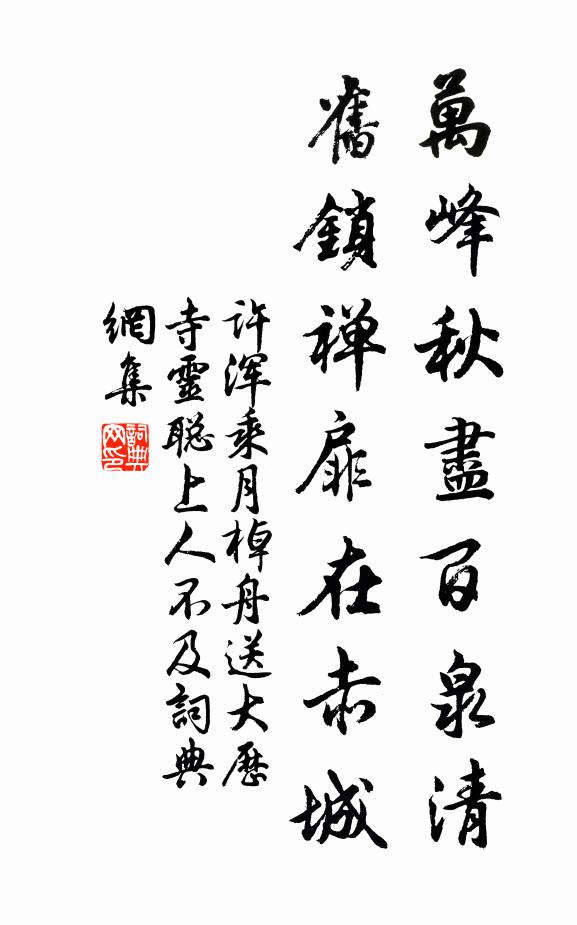 萬峰秋盡百泉清
舊鎖禅扉在赤城
许浑乘月棹舟送大歷
寺靈聡上人不及詞典
網集
詞典网印